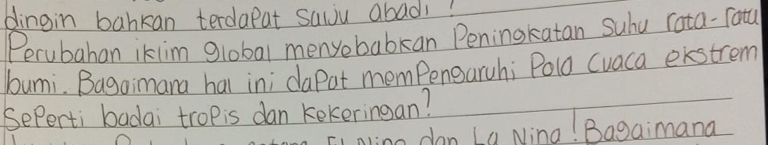 dingin bahkan terdapat salju abadi!
Perubahan iklim global menyebabkan Peningkatan Suhu rata-rata
bumi. Bagaimana hal ini dapat memPengaruhi Pola Cuaca ekstrem
Seperti badai tropis dan kekeringan?
El Nino dan La Nina! Bagaimana